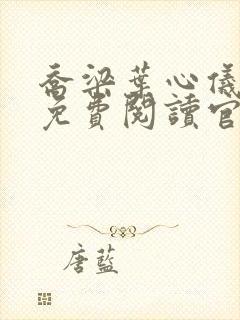 喬梁葉心儀
免費閱讀官
唐藍